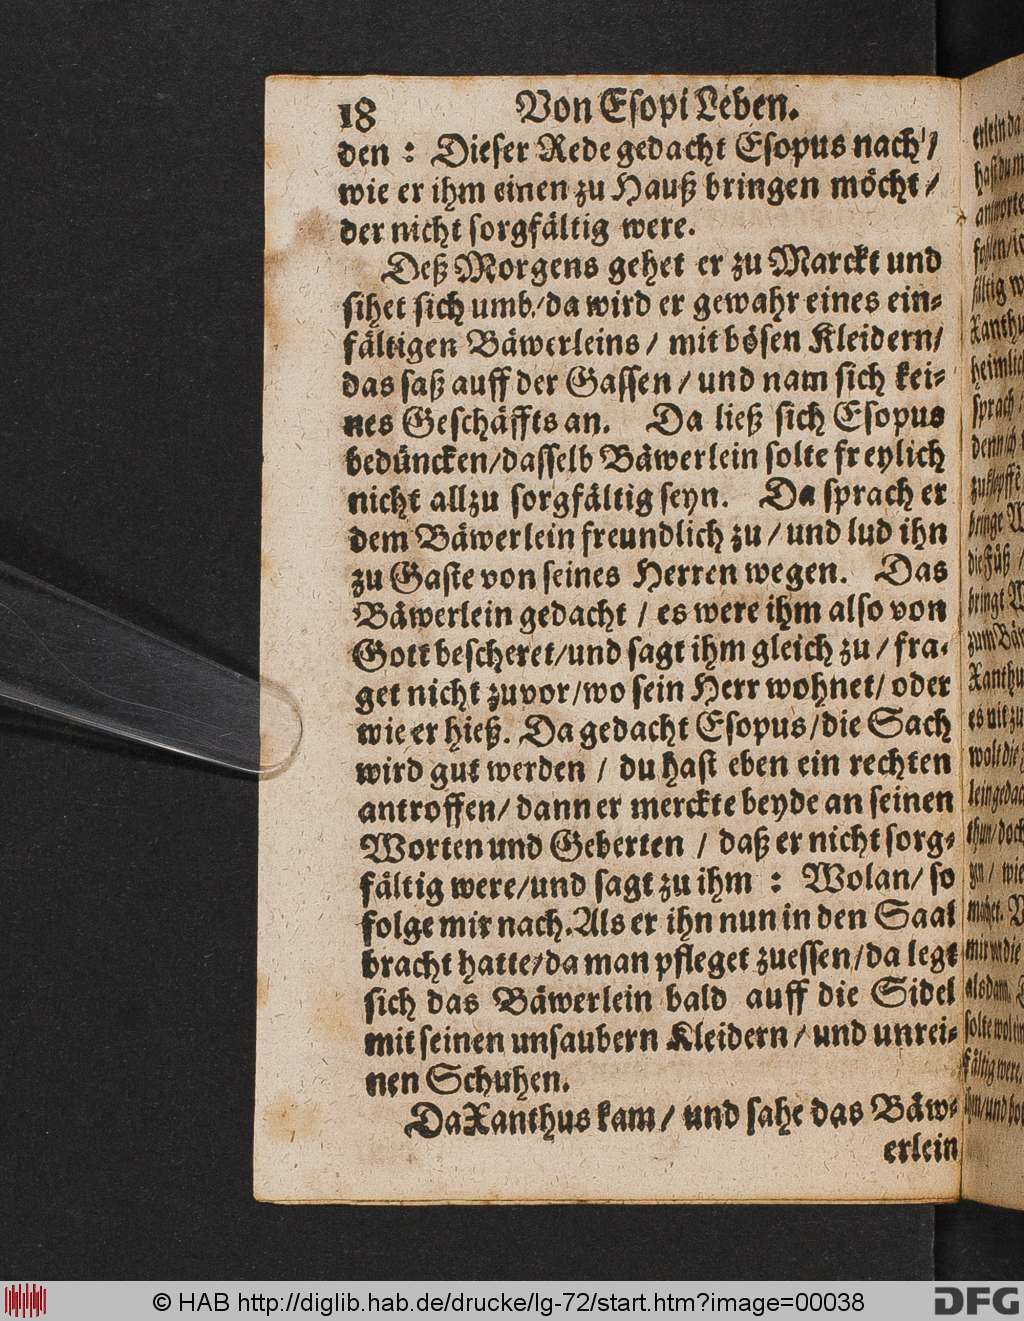 18 Von Esopi Leben.
den : Dieser Rede gedacht Esopus nach /
wie er ihm einen zu Hauß bringen möcht /
der nicht sorgfältig were.
Deß Morgens gehet er zu Marckt und
sihet sich umb / da wird er gewahr eines ein-
fältigen Bäwerleins / mit bösen Kleidern /
das saß auff der Gassen / und nam sich kei-
nes Geschäffts an. Da ließ sich Esopus
bedüncken / dasselb Bäwerlein solte freylich
nicht allzu sorgfältig seyn. Da sprach er
dem Bäwerlein freundlich zu / und lud ihn
zu Gaste von seines Herren wegen. Das
Bäwerlein gedacht / es were ihm also von
Gott bescheret / und sagt ihm gleich zu / fra-
get nicht zuvor / wo sein Herr wohnet / oder
wie er hieß. Da gedacht Esopus / die Sach
wird gut werden / du hast eben ein rechten
antroffen / dann er merckte beyde an seinen
Worten und Geberten / daß er nicht sorg-
fältig were / und sagt zu ihm : Wolan / so
folge mir nach. Als er ihn nun in den Saal
bracht hatte / da man pfleget zuessen / da legt
sich das Bäwerlein bald auff die Sidel
mit seinen unsaubern Kleidern / und unrei-
nen Schuhen.
Da Xanthus kam / und sahe das Bäw-
erlein
© HAB http://diglib.hab.de/drucke/lg-72/start.htm?image=00038
DFG